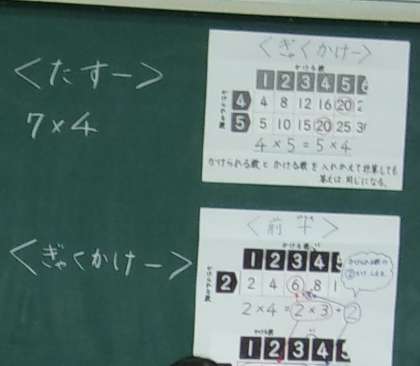 ＜たすー＞
7×4
＜ぎゃくかけー＞
＜ぎゃくかけー＞
かける数
1 2 3 4 5 6
かけられる数
4 4 8 12 16 20 2
5 5 10 15 20 25 3
4×5=5×4
かけられる数とかける数を入れかえて計算しても
答えは、同じになる。
かける数
1 2 3 4
かけられる数
2 2 4 6 8 1
2×4=2×3+2
かけられる数の
かける数
1 2 3 4